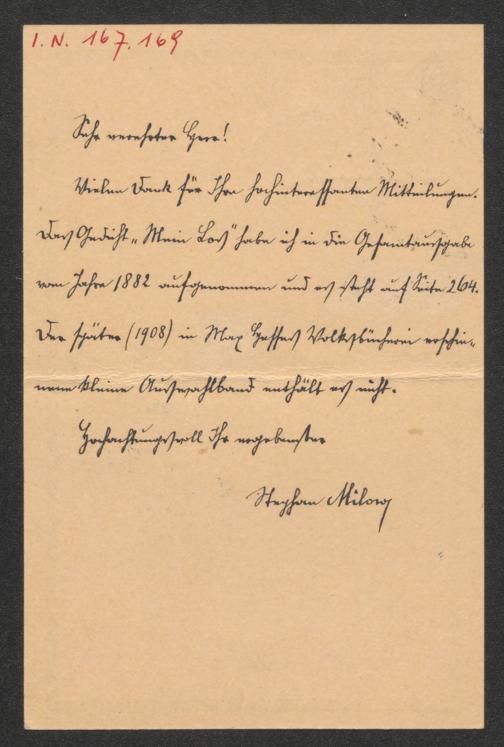 I.N. 167.169
Sehr verehrter Herr!
Vielen Dank für Ihre hochinteressanten Mitteilungen.
Das Gedicht „Mein Los" habe ich in die Gesamtausgabe
vom Jahre 1882 aufgenommen und es steht auf Seite 264.
Der später (1908) in Max Hesses Volksbücherei erschie-
nene kleine Auswahlband enthält es nicht.
Hochachtungsvoll Ihr ergebenster
Stephan Milow